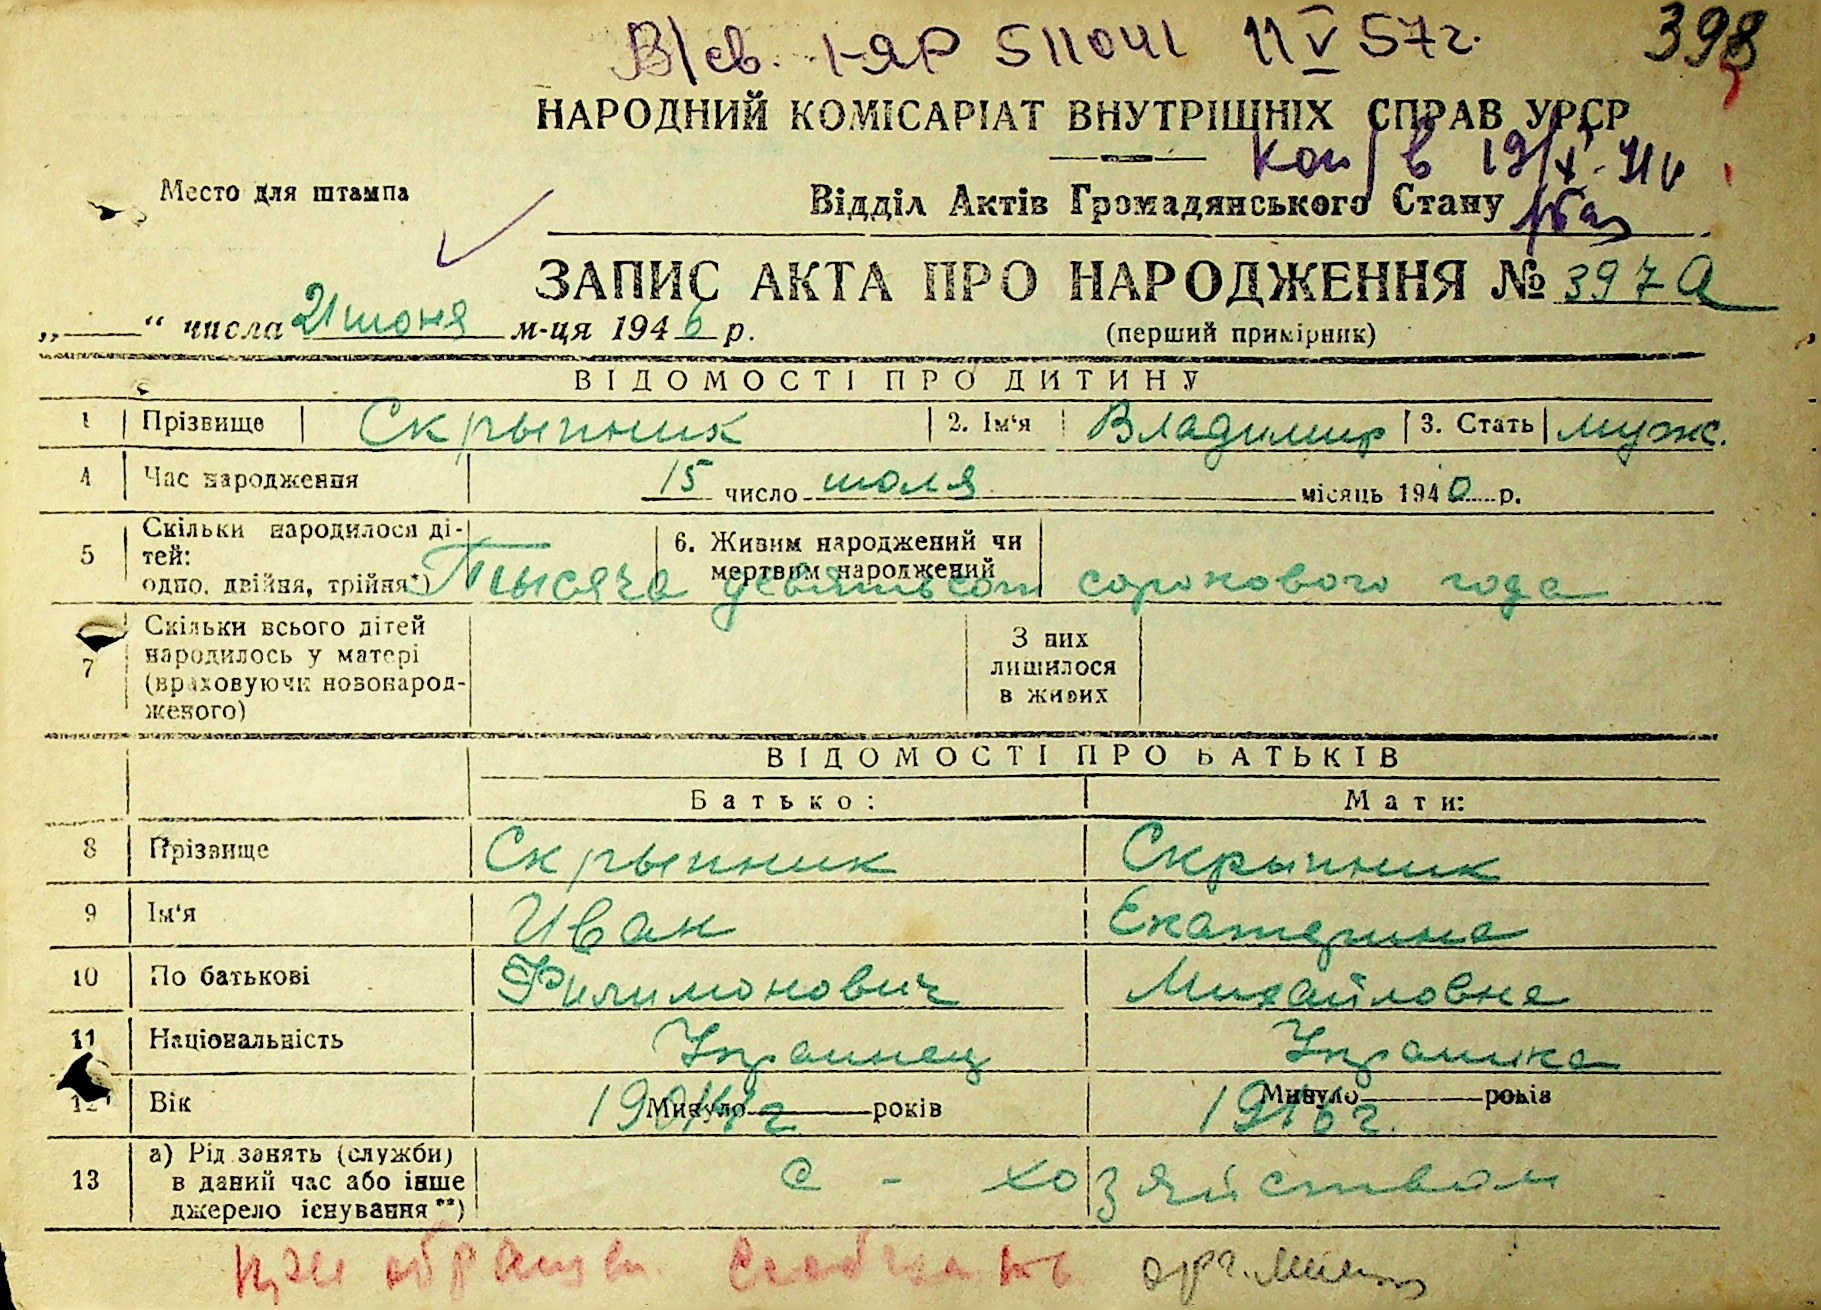 В/св. I-ЯР 511041 11 V 57г. 398
НАРОДНИЙ КОМІСАРІАТ ВНУТРІШНІХ СПРАВ УРСР
Место для штампа
Відділ Актів Громадянського Стану
ЗАПИС АКТА ПРО НАРОДЖЕННЯ № 397а
„ “ числа 21 июня м-ця 1946 р. (перший примірник)
ВІДОМОСТІ ПРО ДИТИНУ
1 Прізвище Скрыпник 2. Ім‘я Владимир 3. Стать муж.
4 Час народження 15 число июля місяць 1940 р.
5 Скільки народилося ді-
тей:
одно, двійня, трійня*)
6. Живим народжений чи
мертвим народжений
Тысяча девятьсот сорокового года
7 Скільки всього дітей
народилось у матері
(враховуючи новонарод-
женого)
З них
лишилося
в живих
ВІДОМОСТІ ПРО БАТЬКІВ
Батько: Мати:
8 Прізвище Скрыпник Скрыпник
9 Ім‘я Иван Екатерина
10 По батькові Филимонович Михайловна
11 Національність Украинец Украинка
12 Вік Минуло років Минуло років
1916 г.
13 а) Рід занять (служби)
в даний час або інше
джерело існування**)
с - хозяйством
при обращен. сообщить